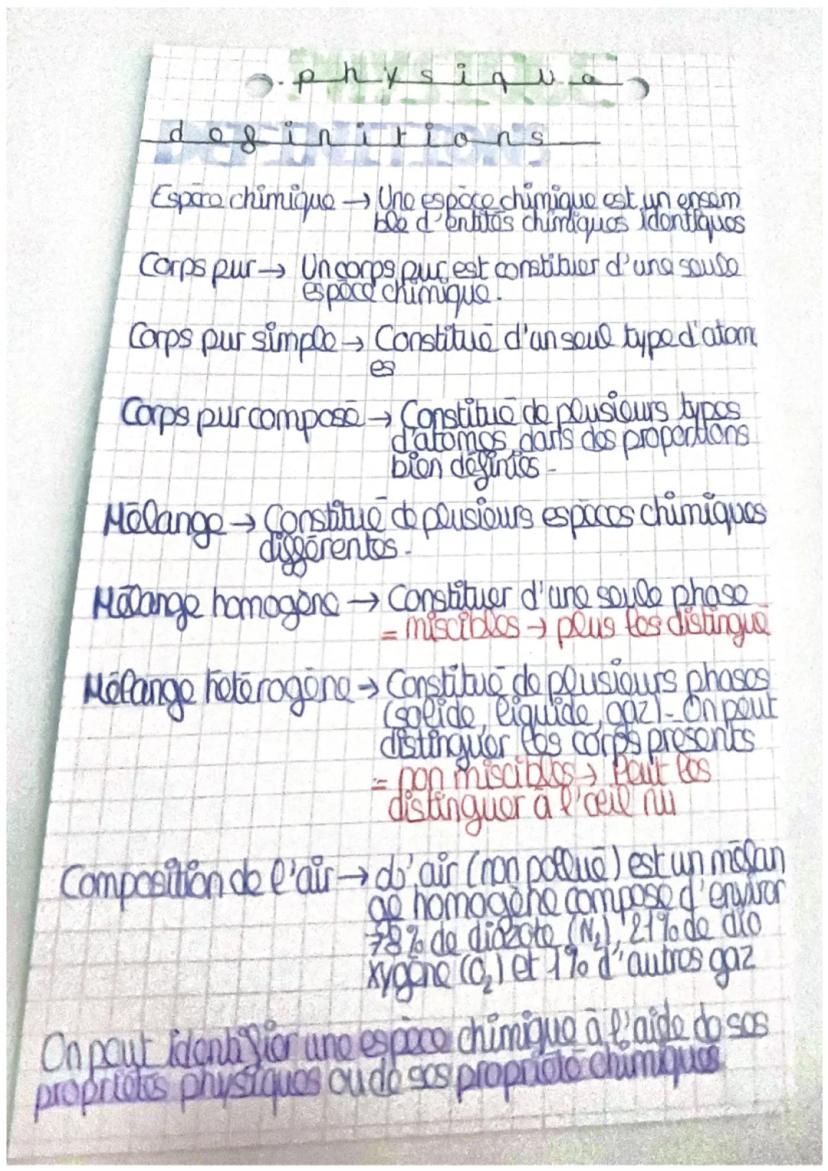 physique
definitions
Espèce chimique → Une espèce chimique est un ensem
ble d'entités chimiques identiques
Corps pur → Un corps pur est constituer d'une seule
espèce chimique.
Corps pur simple → Constitué d'un seul type d'atom
es
Corps pur composé → Constitué de plusieurs types
d'atomes dans des proportions
bien définies -
Mélange → Constitué de plusieurs espèces chimiques
différentes.
Mélange homogène → Constituer d'une seule phase
= miscibles → plus les distingué
Mélange hétérogène → Constitué de plusieurs phases
(solide, liquide, gaz) - On peut
distinguer les corps presents
= non miscibles → Peut les
distinguer à l'œil nu
Composition de l'air → L'air (non pollué) est un mélan
ge homogène compose d'environ
78% de diazote (N₂), 21% de dio
xygène (O₂) et 1% d'autres gaz
On peut identifier une espèce chimique à l'aide de ses
propriétés physiques ou de ses propriété chimiques